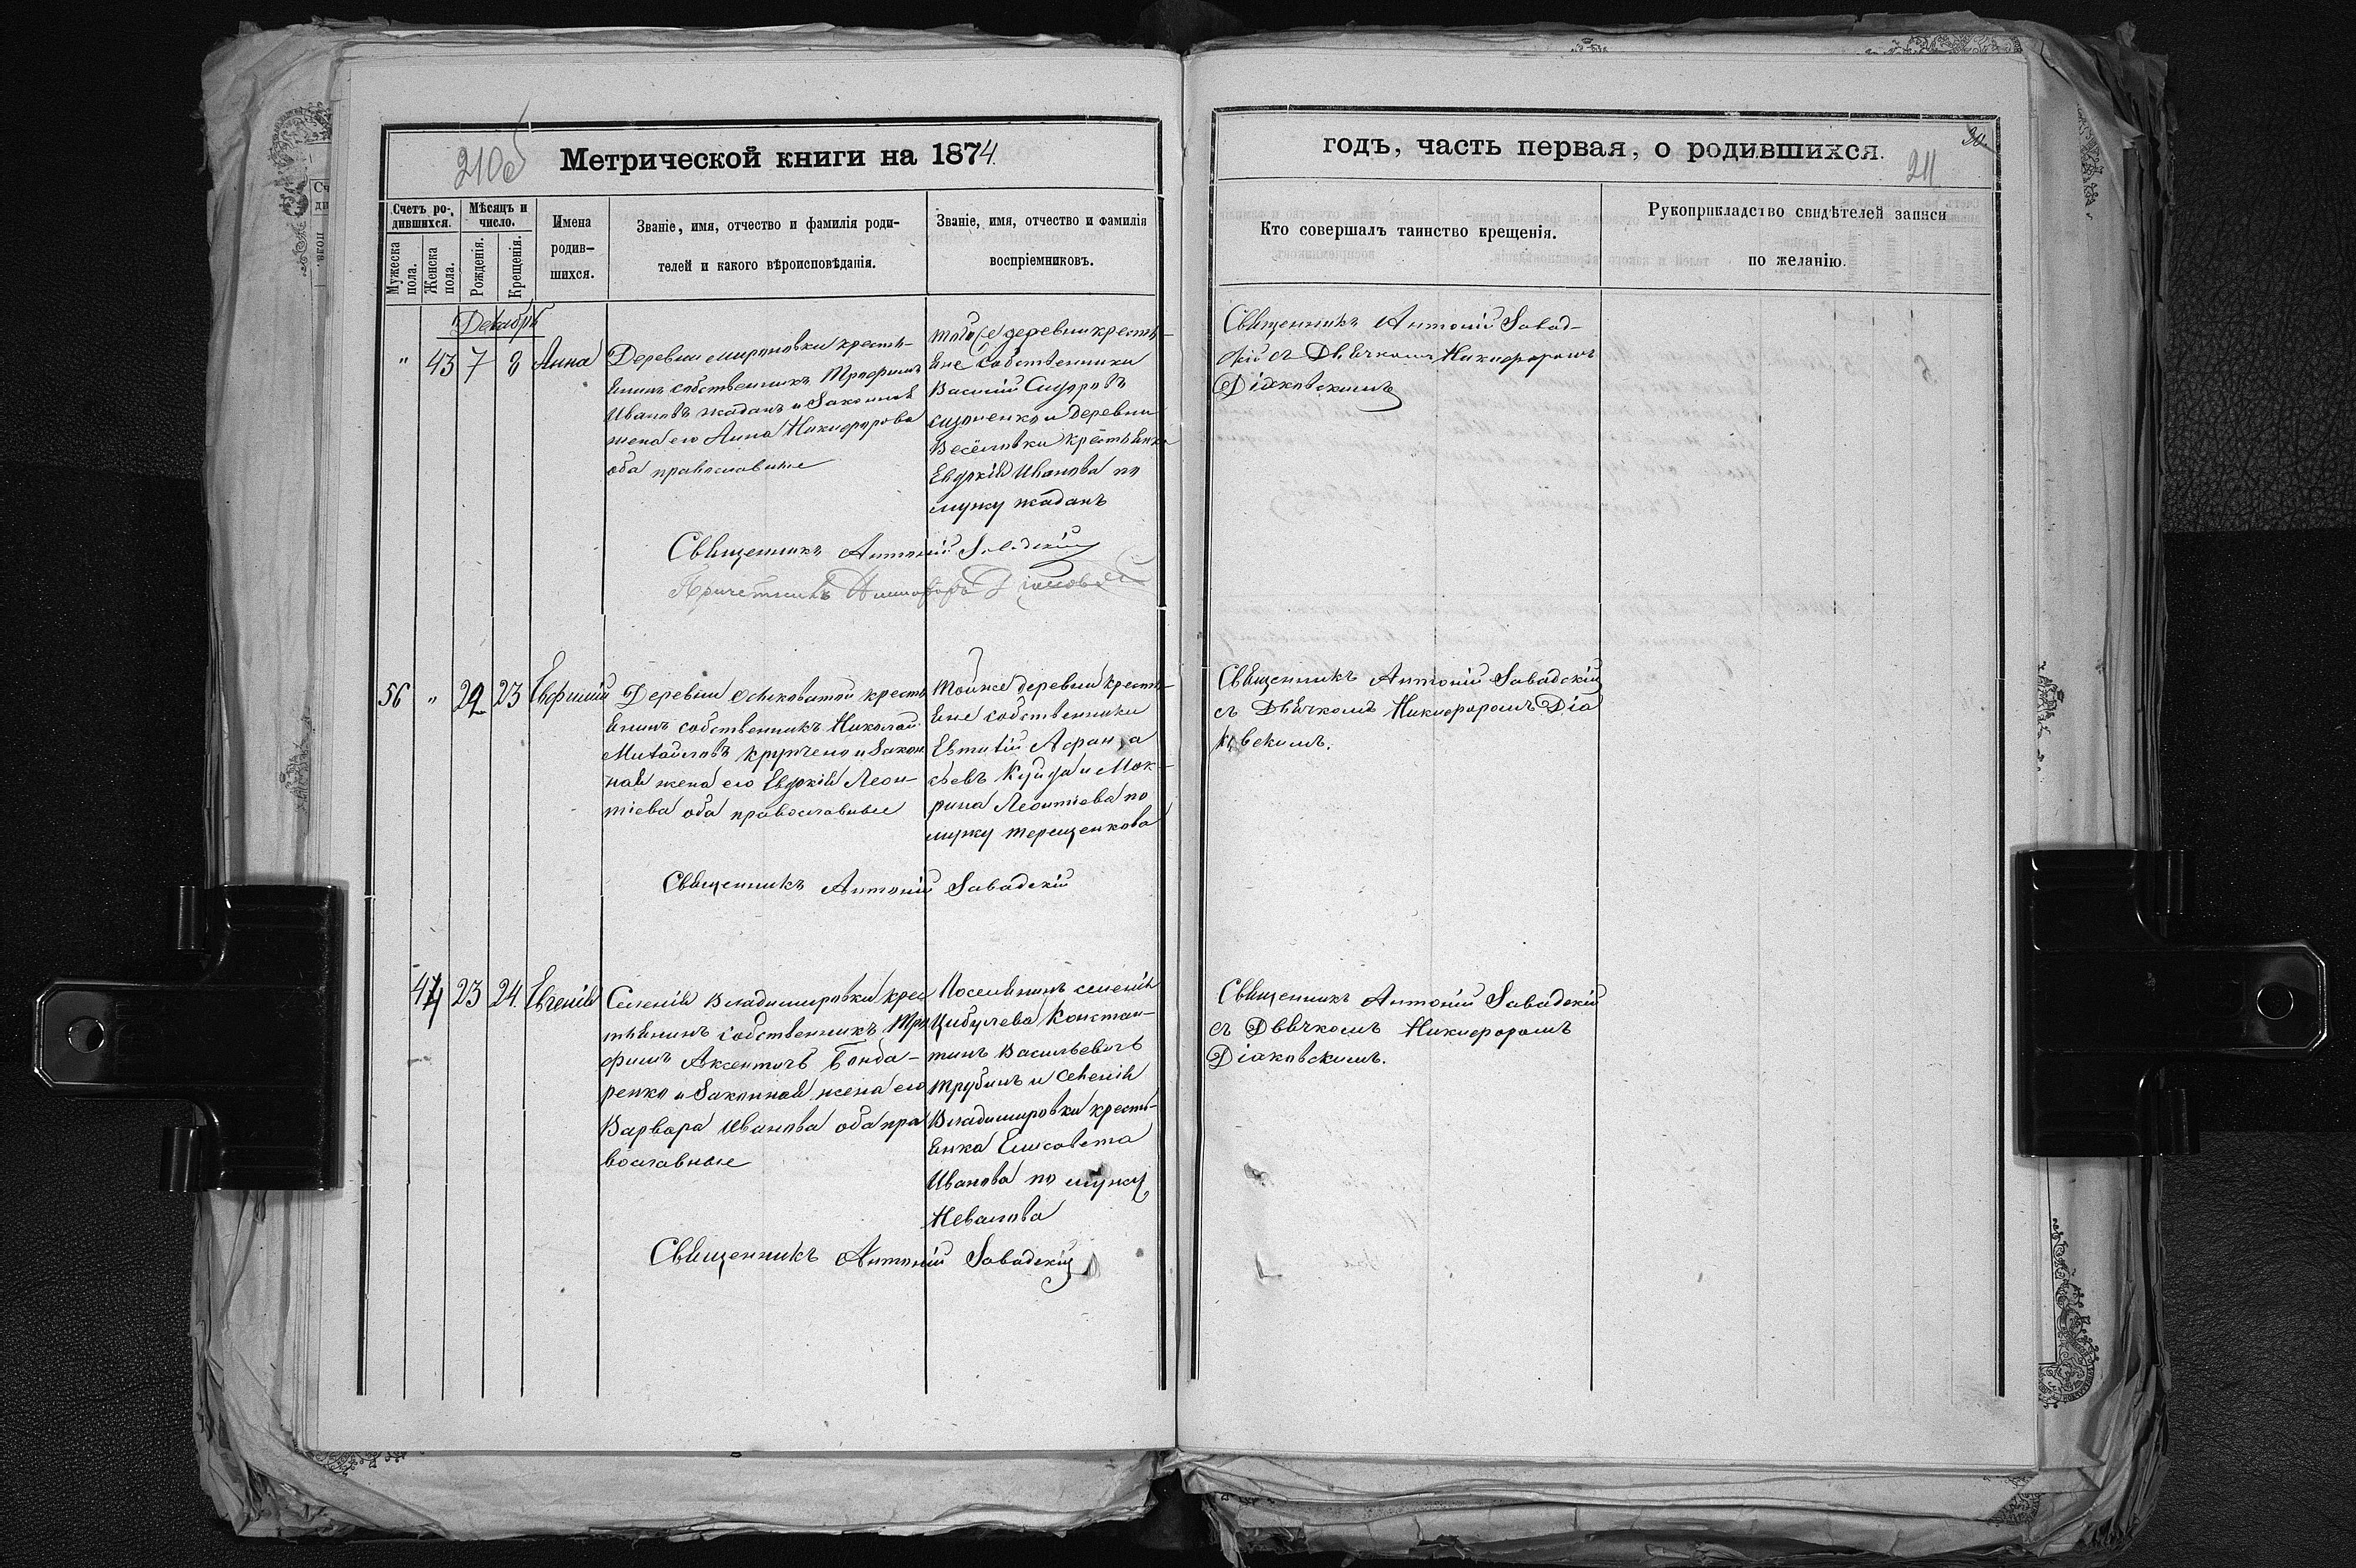 210об
Метрической книги на 1874.
Счетъ ро-
дившихся.
Мѣсяцъ и
число.
Мужеска
пола.
Женска
пола.
Рожденія.
Крещенія.
Имена
родив-
шихся.
Званіе, имя, отчество и фамилія роди-
телей и какого вѣроисповѣданія.
Званіе, имя, отчество и фамилія
воспріемниковъ.
Декабрь
" 43 7 8 Анна
Деревни Мироновки кресть-
янинъ собственникъ Трофимъ
Ивановъ Жаданъ и законная
жена его Анна Никифорова
оба православные
тойже деревни кресть-
яне собственники
Василій Сидоровъ
и деревни
Весёловки крестьянка
Евдокія Иванова по
мужу Жаданъ
Священникъ Антоній Завадскій
Причетникъ Никифоръ Діаковскій
56 " 22 23 Евфимій
Деревни Осиковатой кресть
янинъ собственникъ Николай
Михайловъ и закон
ная жена его Евдокія Леон-
тіева оба православные
Тойже деревни кресть-
яне собственники
Евтихій Афана
сьевъ и Мок-
рина Леонтіева по
мужу Терещенкова
Священникъ Антоній Завадскій
44 23 24. Евгенія
Селенія Владимировки крес
тьянинъ собственникъ Тро
фимъ Аксентичъ Бонда-
ренко и законная жена его
Варвара Иванова оба пра
вославные
Поселянинъ селенія
Цибулева Констан-
тинъ Васильевичъ
Трубинъ и селенія
Владимировки кресть-
янка Елисавета
Иванова по мужу
Священникъ Антоній Завадскій
годъ, часть первая, о родившихся.
211
Кто совершалъ таинство крещенія.
Рукоприкладство свидѣтелей записи
по желанію.
Священникъ Антоній Завад-
скій съ Дьячкомъ Никифоромъ
Діаковскимъ
Священникъ Антоній Завадскій
съ Дьячкомъ Никифоромъ Діа
ковскимъ.
Священникъ Антоній Завадскій
съ Дьячкомъ Никифоромъ
Діаковскимъ.